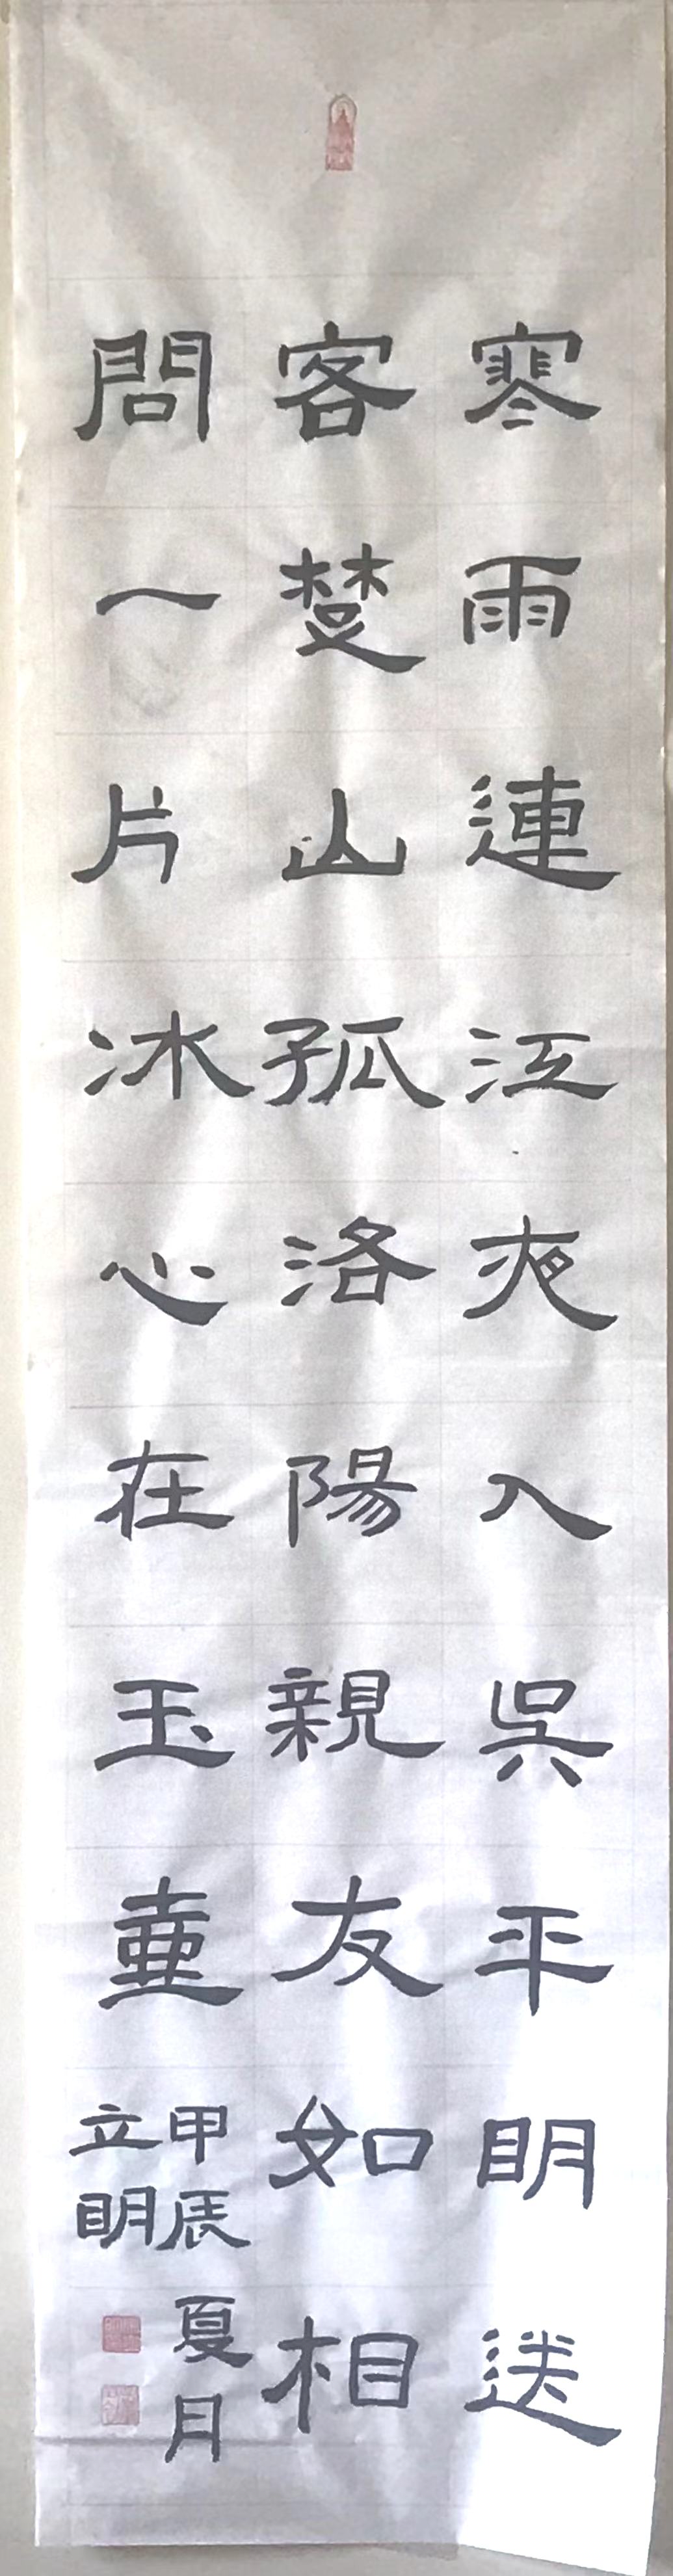 寒雨連江夜入吳平明送
客楚山孤洛陽親友如相
問一片冰心在玉壺
甲辰夏月
立明